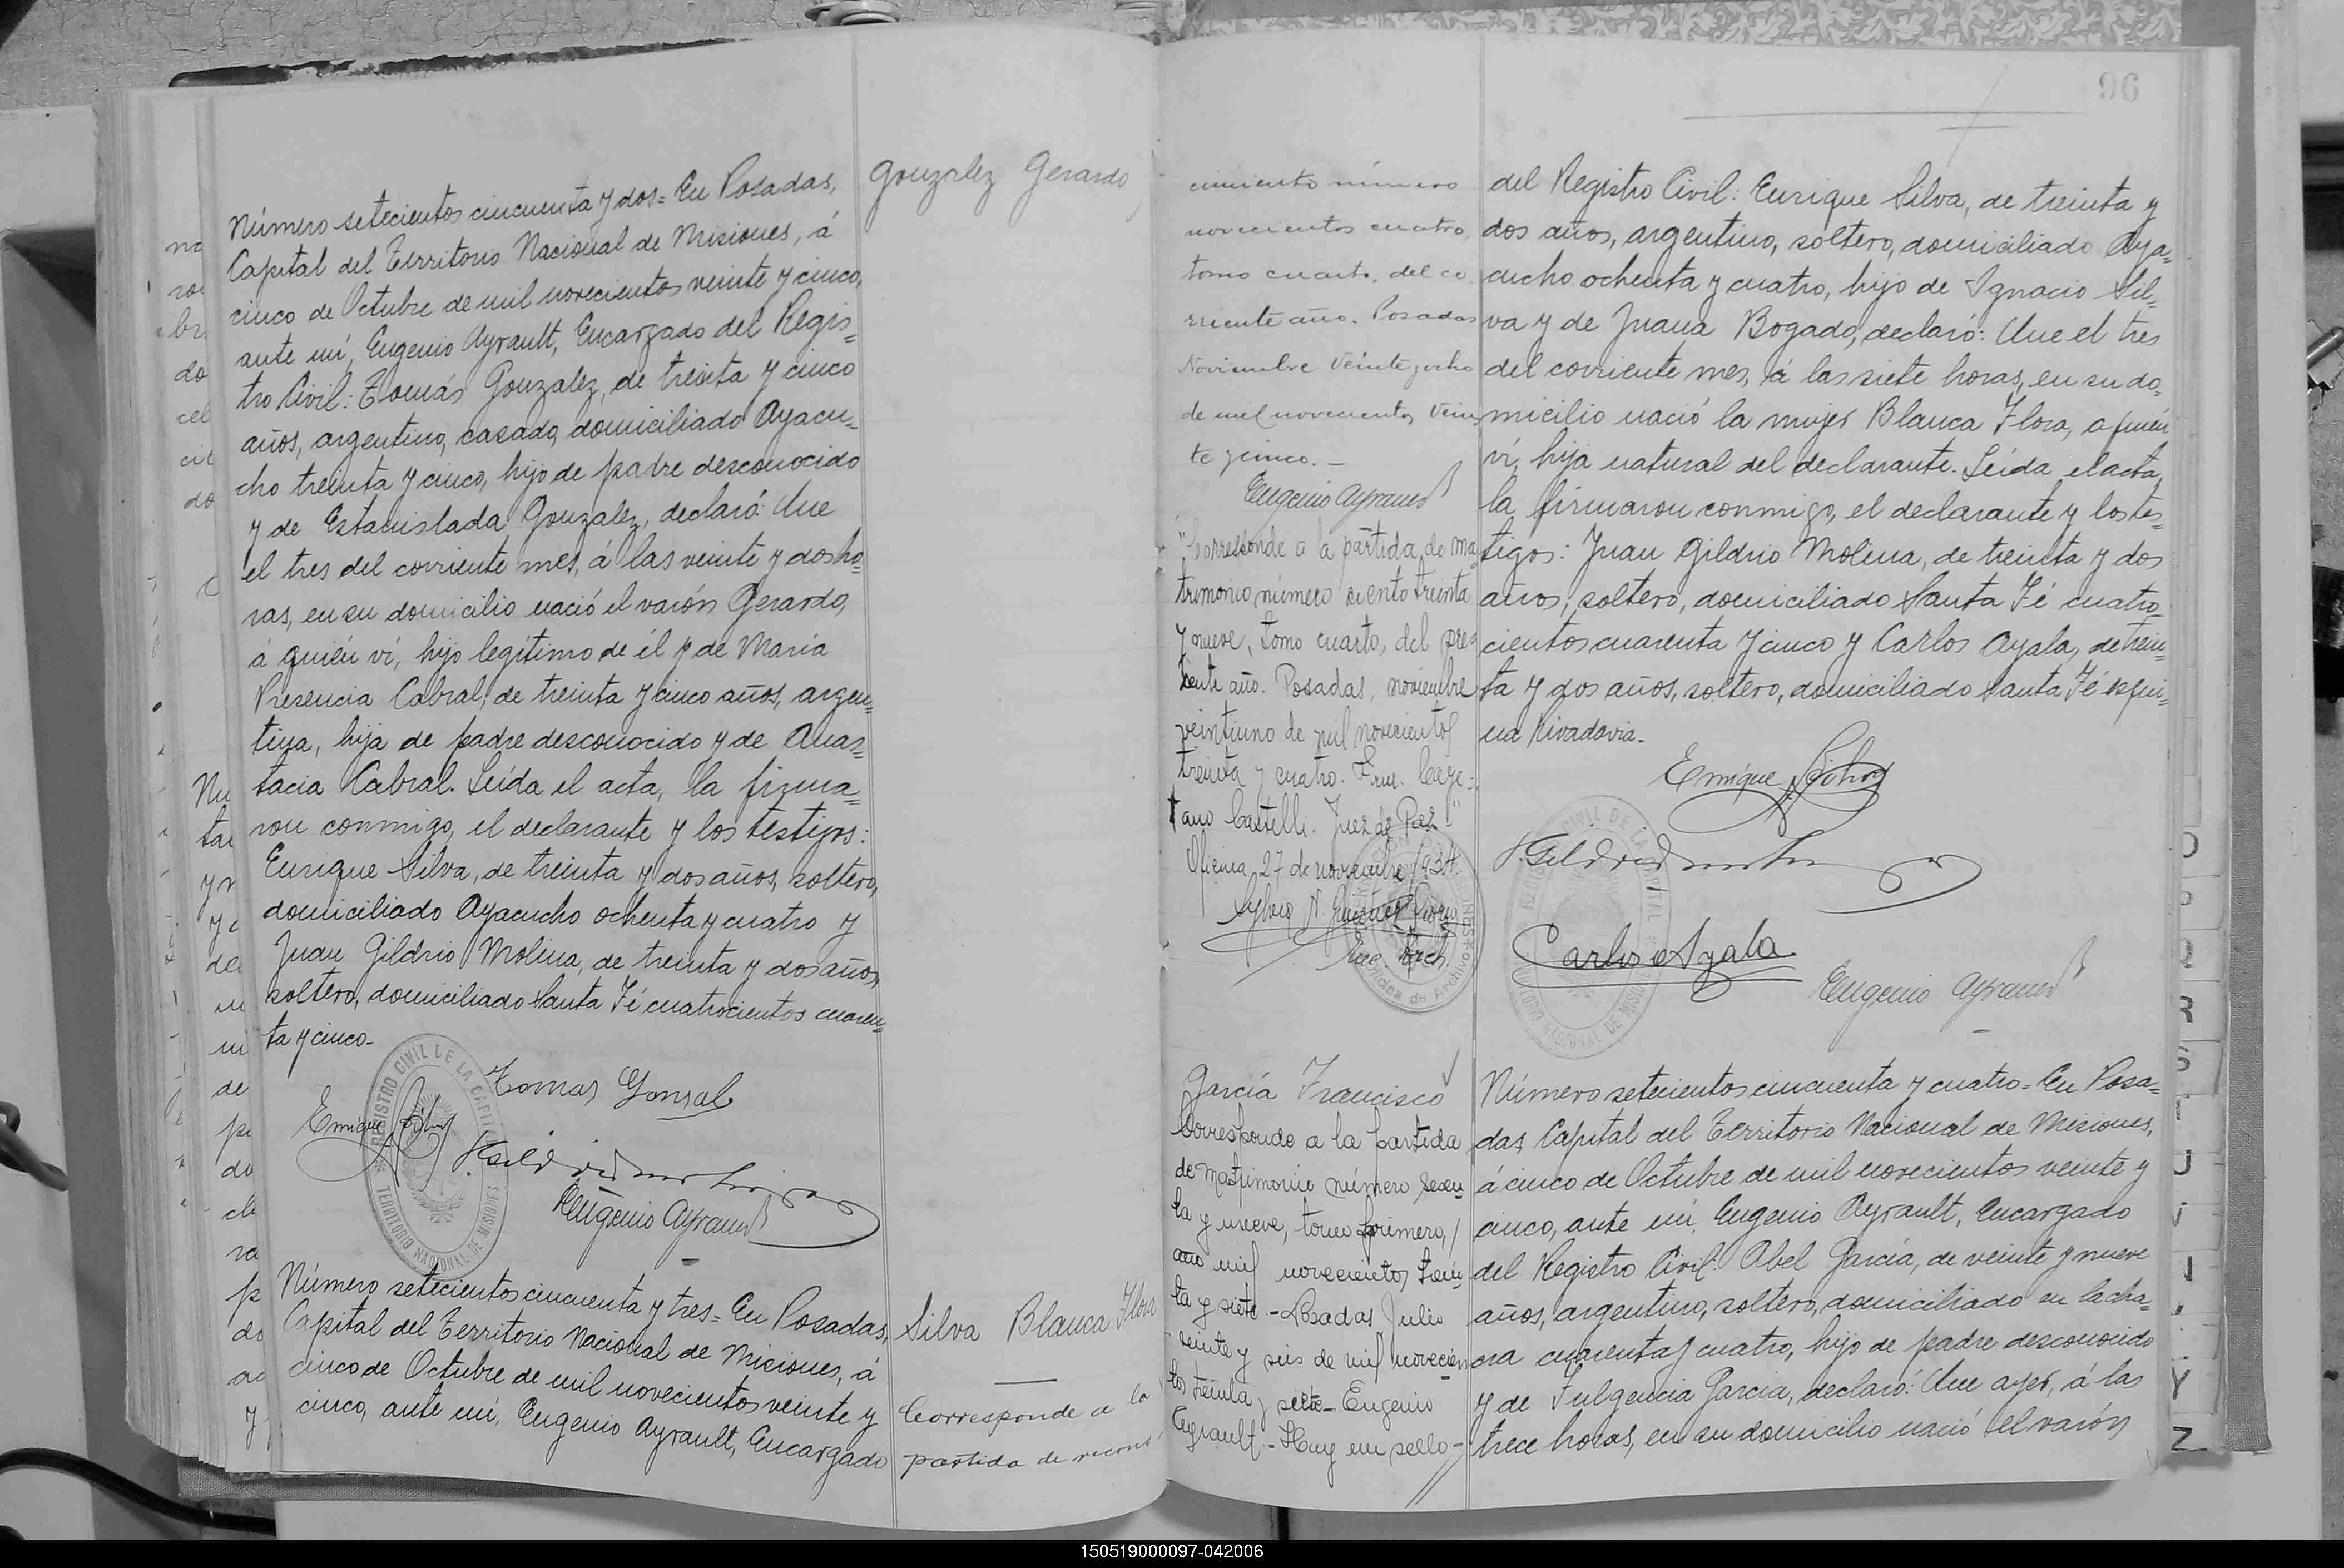 Número setecientos cincuenta y dos= En Posadas,
Capital del Territorio Nacional de Misiones, á
cinco de Octubre de mil novecientos veinte y cinco,
ante mí, Eugenio Ayrault, Encargado del Regis=
tro Civil: Tomás Gonzalez, de treinta y cinco
años, argentino, casado, domiciliado Ayacu=
cho treinta y cinco, hijo de padre desconocido
y de Estanislada Gonzalez, declaró: Que
el tres del corriente mes, á las veinte y dos ho=
ras, en su domicilio nació el varón Gerardo,
á quién ví, hijo legítimo de él y de María
Presencia Cabral, de treinta y cinco años, argen=
tina, hija de padre desconocido y de Anas=
tacia Cabral. Leída el acta, la firma=
ron conmigo, el declarante y los testigos:
Enrique Silva, de treinta y dos años, soltero,
domiciliado Ayacucho ochenta y cuatro y
Juan Gildrio Molina, de treinta y dos años,
soltero, domiciliado Santa Fé cuatrocientos cuaren=
ta y cinco-
Tomas Gonsal
Enrique Silva
Eugenio Ayrault
REGISTRO CIVIL DE LA CAPITAL
TERRITORIO NACIONAL DE MISIONES
Número setecientos cincuenta y tres= En Posadas,
Capital del Territorio Nacional de Misiones, á
cinco de Octubre de mil novecientos veinte y
cinco, ante mí, Eugenio Ayrault, Encargado
Gonzalez Gerardo
Silva Blanca Flora
Corresponde a la
partida de recono
cimiento número
novecientos cuatro,
tomo cuarto, del co
rriente año. Posadas
Noviembre veinte y ocho
de mil novecientos vein
te y cinco.-
Eugenio Ayrault
"Corresponde a la partida de ma
trimonio número ciento treinta
y nueve, tomo cuarto, del pre=
sente año. Posadas, noviembre
veintiuno de mil novecientos
treinta y cuatro. Fm. Caye-
tano Castelli. Juez de Paz"
Oficina 27 de noviembre/934.
Enc. Arch.
Oficina de Archivo
García Francisco
Corresponde a la partida
de matrimonio número sesen
ta y nueve, tomo primero,/
año mil novecientos trein
ta y siete.-Posadas Julio
veinte y seis de mil novecien
tos treinta y siete- Eugenio
Ayrault.-Hay un sello-
96
del Registro Civil: Enrique Silva, de treinta y
dos años, argentino, soltero, domiciliado Aya=
cucho ochenta y cuatro, hijo de Ignacio Sil=
va y de Juana Bogado, declaró: Que el tres
del corriente mes, á las siete horas, en su do=
micilio nació la mujer Blanca Flora, a quién
ví, hija natural del declarante. Leída el acta,
la firmaron conmigo, el declarante y los tes=
tigos: Juan Gildrio Molina, de treinta y dos
años, soltero, domiciliado Santa Fé cuatro
cientos cuarenta y cinco y Carlos Ayala, de trein=
ta y dos años, soltero, domiciliado Santa Fé esqui=
na Rivadavia-
Enrique Silva
REGISTRO CIVIL DE LA CAPITAL
TERRITORIO NACIONAL DE MISIONES
Carlos Ayala
Eugenio Ayrault
Número setecientos cincuenta y cuatro- En Posa=
das, Capital del Territorio Nacional de Misiones,
á cinco de Octubre de mil novecientos veinte y
cinco, ante mí, Eugenio Ayrault, Encargado
del Registro Civil: Abel García, de veinte y nueve
años, argentino, soltero, domiciliado en la cha=
cra cuarenta y cuatro, hijo de padre desconocido
y de Fulgencia Garcia, declaró: Que ayer, á las
trece horas, en su domicilio nació el varón
150519000097-042006